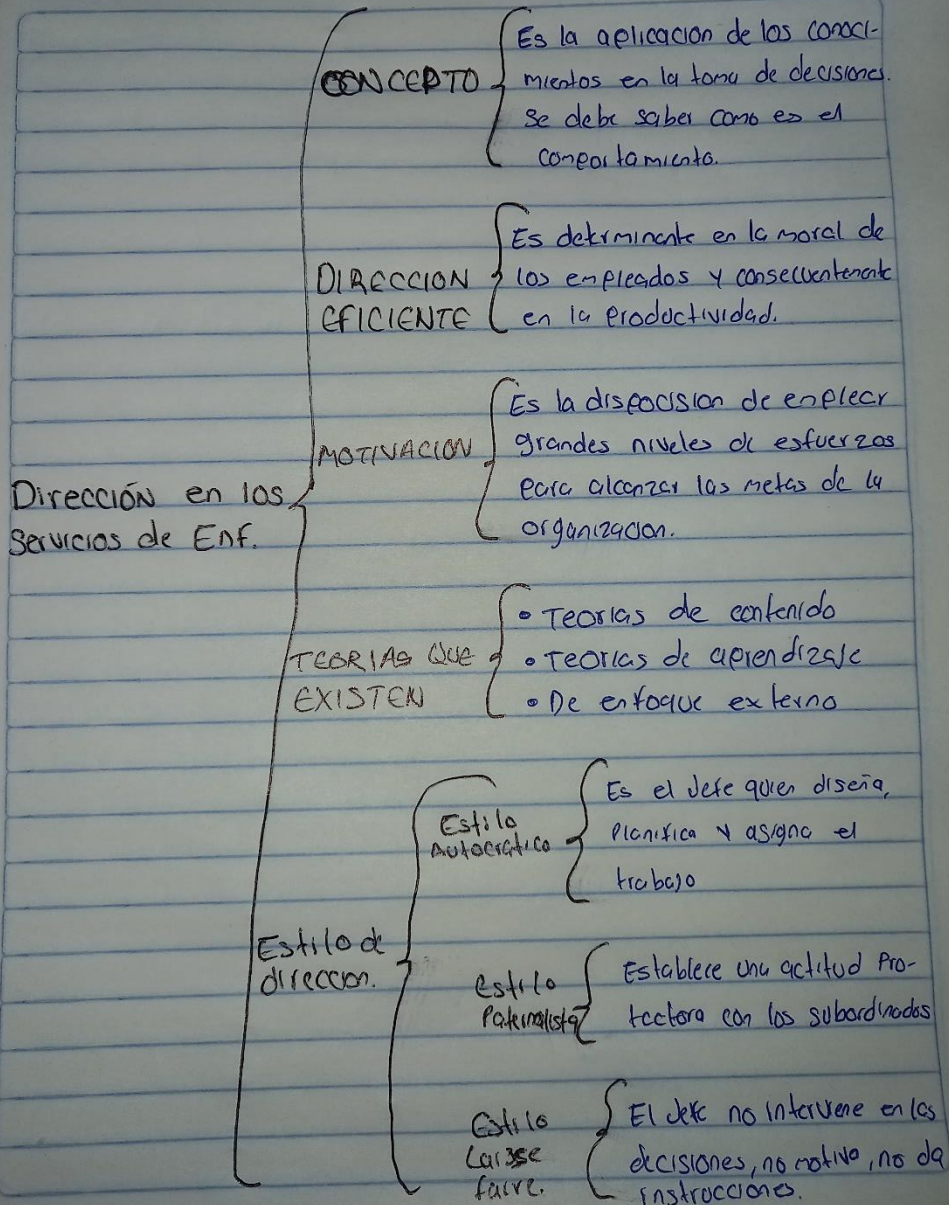 Dirección en los
Servicios de Enf.
CONCEPTO
Es la aplicacion de los conoci-
mientos en la toma de decisiones.
se debe saber como es el
comportamiento.
DIRECCION
EFICIENTE
Es determinante en la moral de
los empleados y consecuentemente
en la productividad.
MOTIVACION
Es la dispocision de emplear
grandes niveles de esfuerzos
para alcanzar las metas de la
organizacion.
TEORIAS QUE
EXISTEN
• Teorias de contenido
• Teorias de aprendizaje
• De enfoque externo
Estilo de
direccion.
Estilo
Autocratico
Es el Jefe quien diseña,
Planifica y asigna el
trabajo
estilo
Paternalista
Establece una actitud Pro-
tectora con los subordinados
Estilo
Laisse
faire.
El Jefe no interviene en las
decisiones, no motiva, no da
instrucciones.